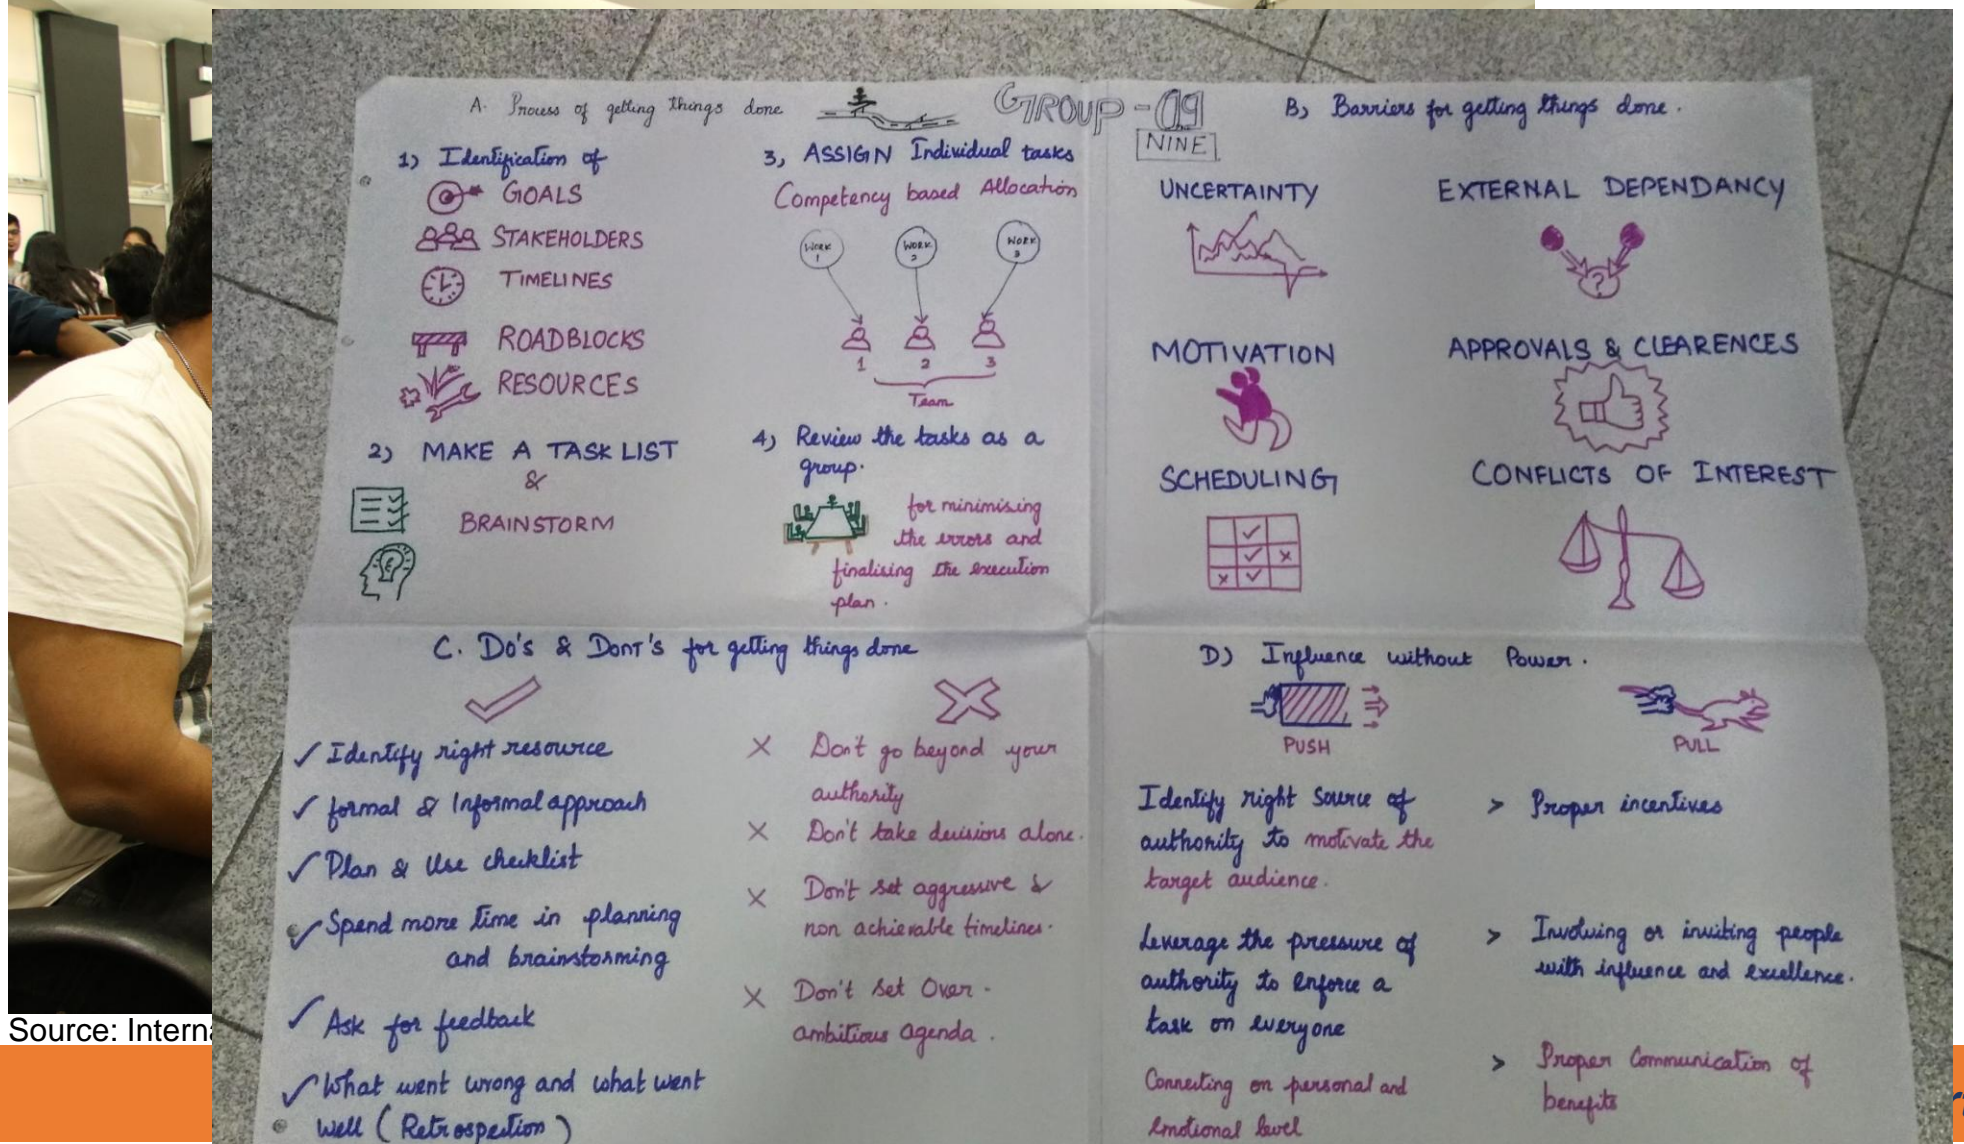 A. Process of getting things done
GROUP-09
NINE
1) Identification of
GOALS
STAKEHOLDERS
TIMELINES
ROADBLOCKS
RESOURCES
2) MAKE A TASK LIST
&
BRAINSTORM
3, ASSIGN Individual tasks
Competency based Allocation
WORK
1
WORK
2
WORK
3
1 2 3
Team
4) Review the tasks as a
group.
for minimising
the errors and
finalising the execution
plan.
B) Barriers for getting things done.
UNCERTAINTY
EXTERNAL DEPENDANCY
?
MOTIVATION
APPROVALS & CLEARENCES
SCHEDULING
CONFLICTS OF INTEREST
C. DO'S & DONT'S for getting things done
Identify right resource
formal & Informal approach
Plan & Use checklist
Spend more time in planning
and brainstorming
Ask for feedback
What went wrong and what went
well (Retrospection)
Don't go beyond your
authority
Don't take decisions alone.
Don't set aggressive &
non achievable timelines.
Don't set Over-
ambitious agenda.
D) Influence without Power.
PUSH
Identify right source of
authority to motivate the
target audience.
Leverage the pressure of
authority to enforce a
task on everyone
Connecting on personal and
emotional level
PULL
> Proper incentives
> Involving or inviting people
with influence and excellence.
> Proper Communication of
benefits
Source: Interna